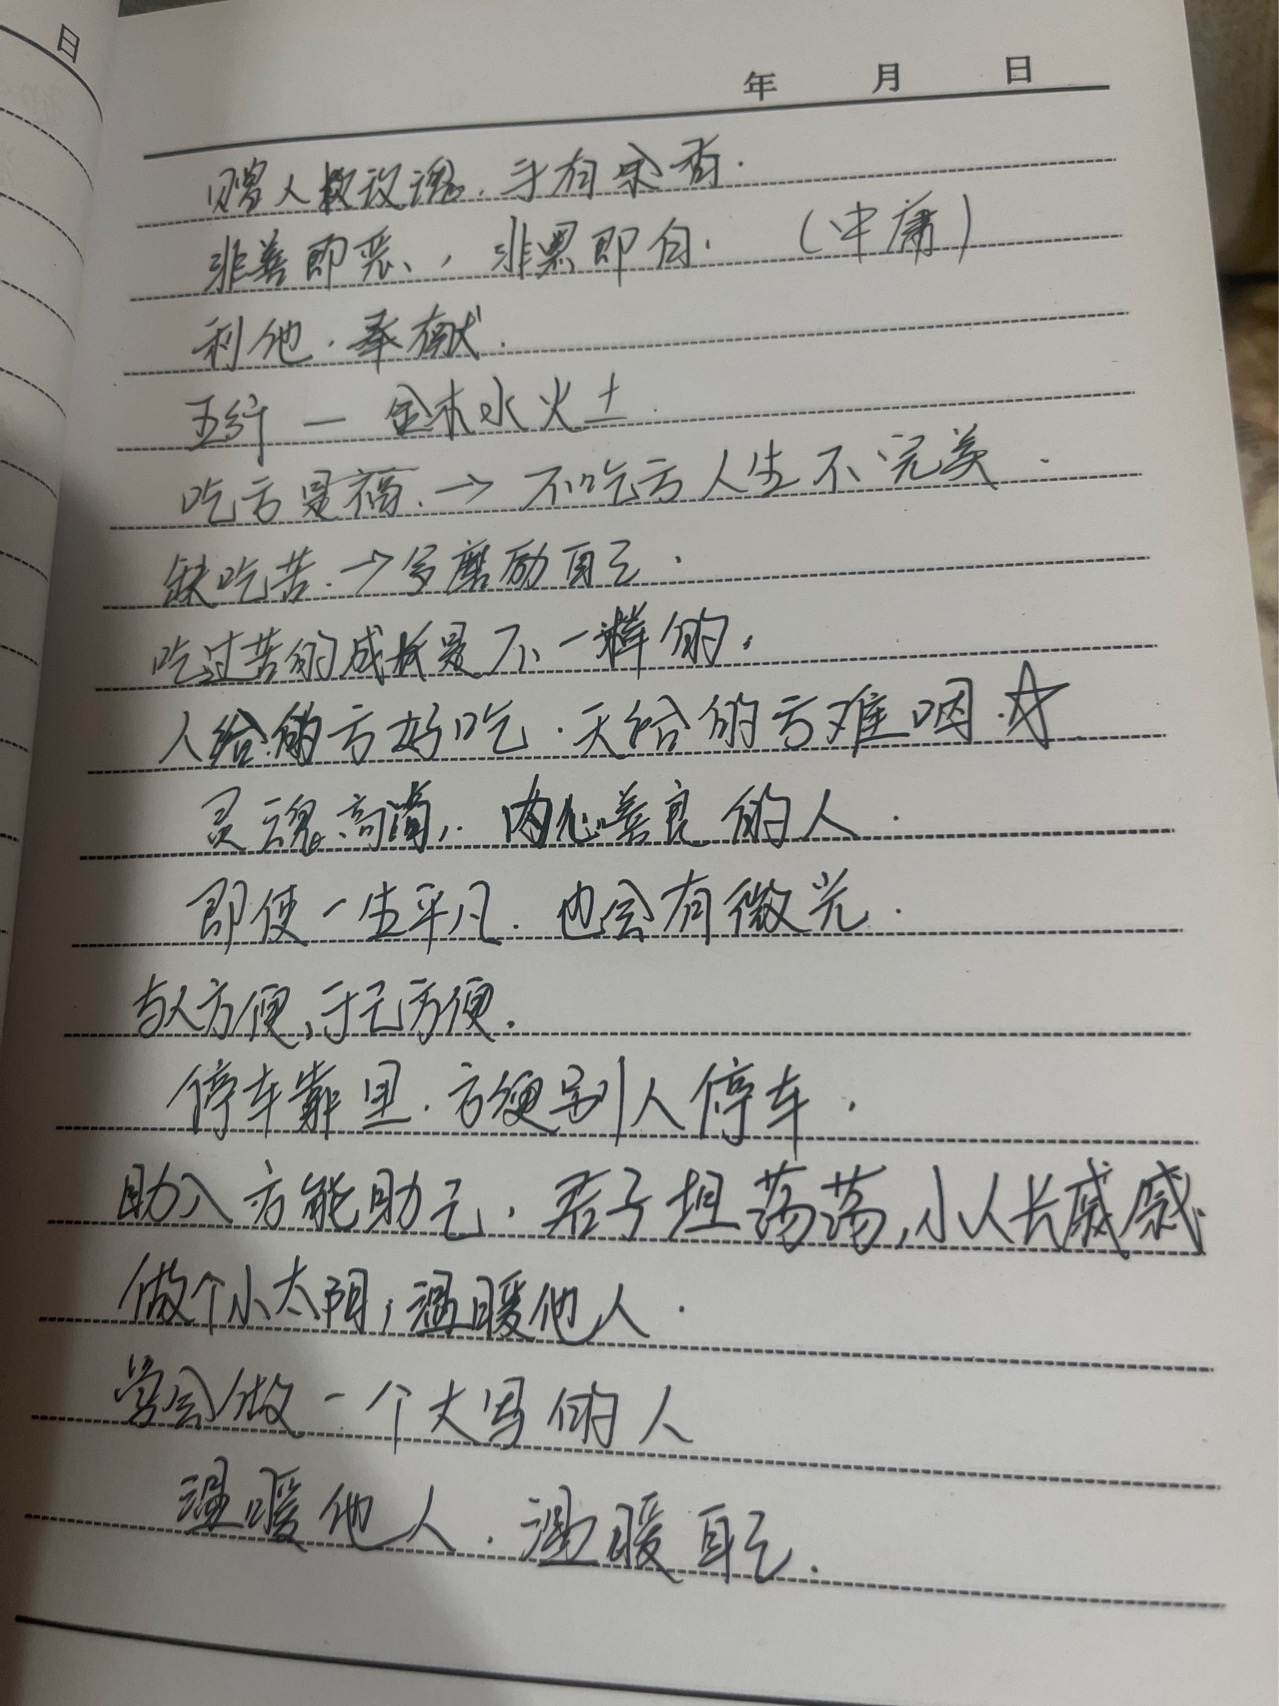 日
年 月 日
赠人玫瑰.手有余香.
非善即恶、,非黑即白. (中庸)
利他.奉献.
五行 — 金木水火土.
吃亏是福.→不吃亏人生不完美.
缺吃苦.→多磨励自己.
吃过苦的成长是不一样的.
人给的亏好吃.天给的亏难咽.☆
灵魂高尚,.内心善良的人.
即使一生平凡.也会有微光.
与人方便,于己方便.
停车靠里.方便别人停车.
助人方能助己.君子坦荡荡,小人长戚戚.
做个小太阳,温暖他人.
学会做一个大写的人
温暖他人.温暖自己.